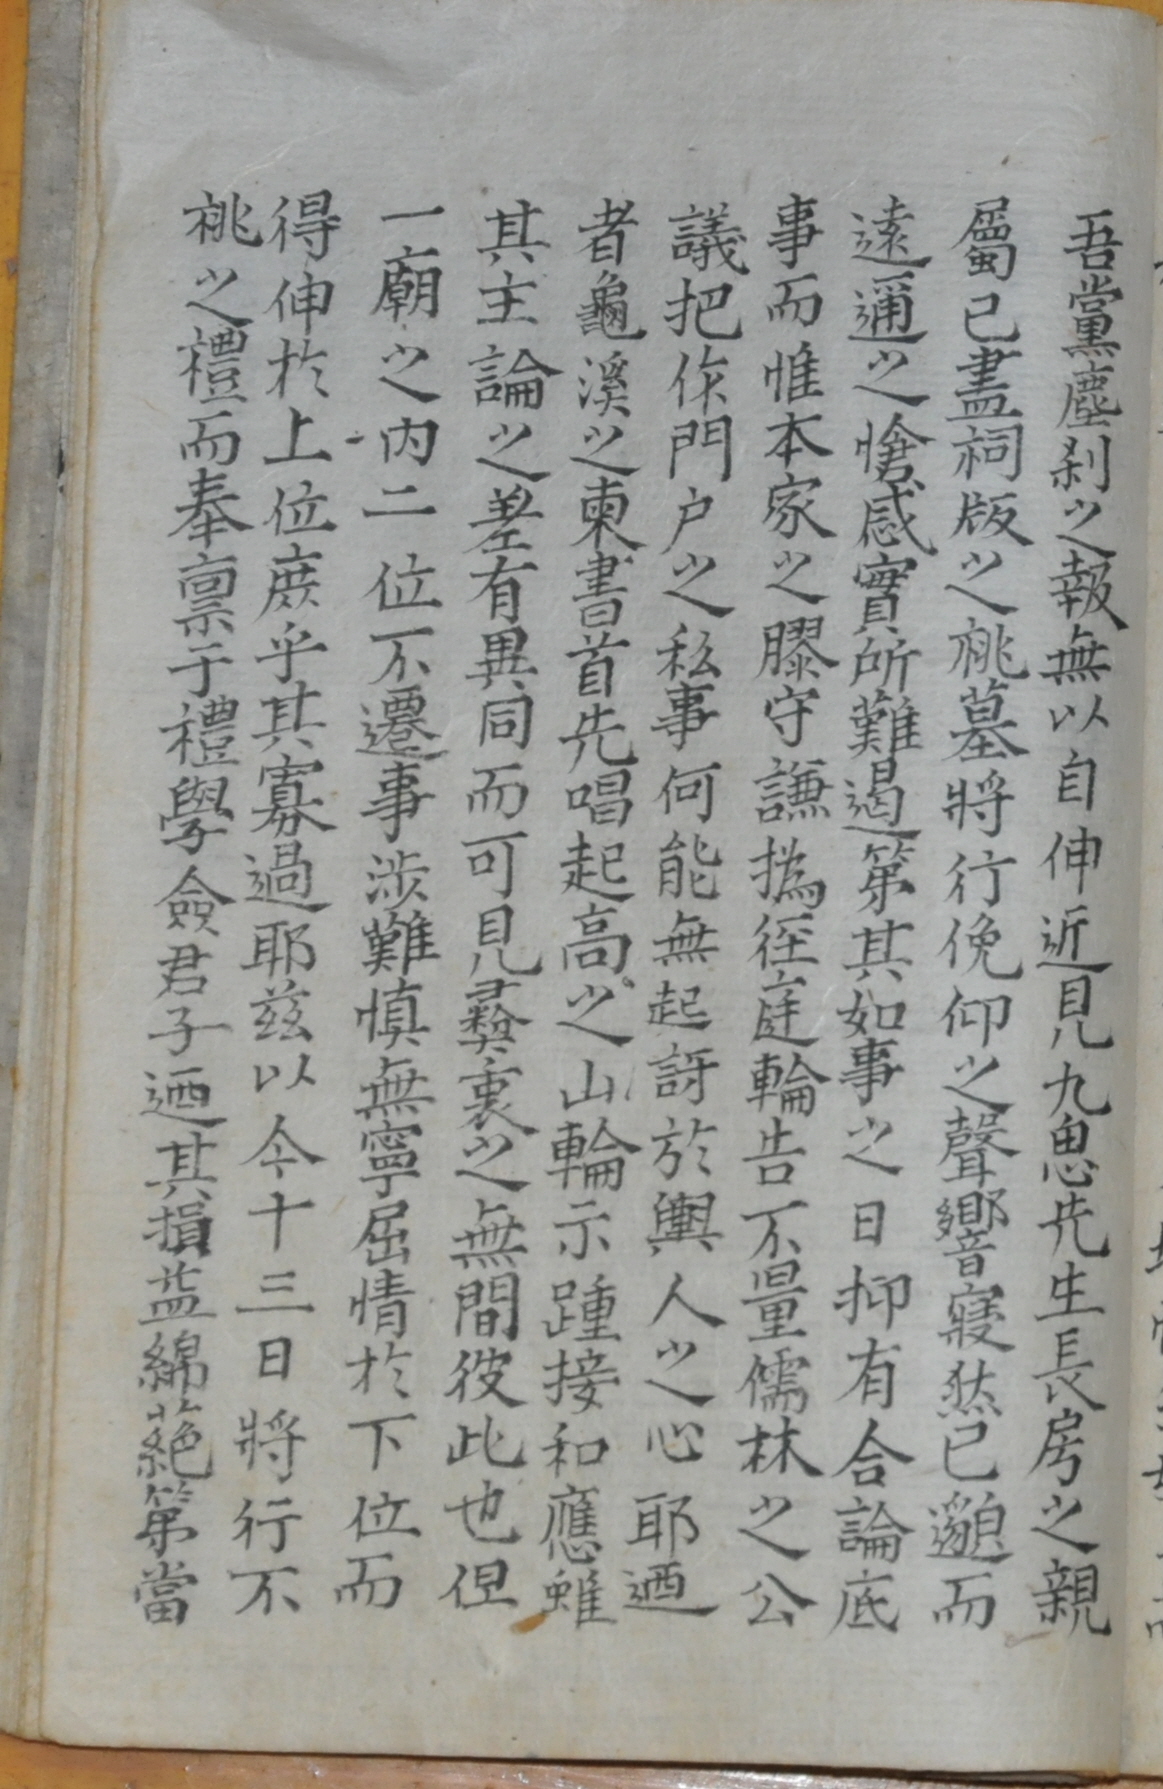 吾黨塵刹之報無以自伸近見九思先生長房之親
屬已盡祠版之祧墓將行俛仰之聲響寢然已邈而
遠邇之愴感實所難遏第其如事之日抑有合論底
事而惟本家之膠守謙撝徑庭輪告不量儒林之公
議把作門户之私事何能無起訝於輿人之心耶迺
者龜溪之柬書首先唱起高之山輪示踵接和應雖
其主論之差有異同而可見彝衷之無間彼此也但
一廟之内二位不遷事涉難愼無寧屈情於下位而
得伸於上位庶乎其寡過耶兹以今十三日將行不
祧之禮而奉禀于禮學僉君子迺其損益綿蕝第當